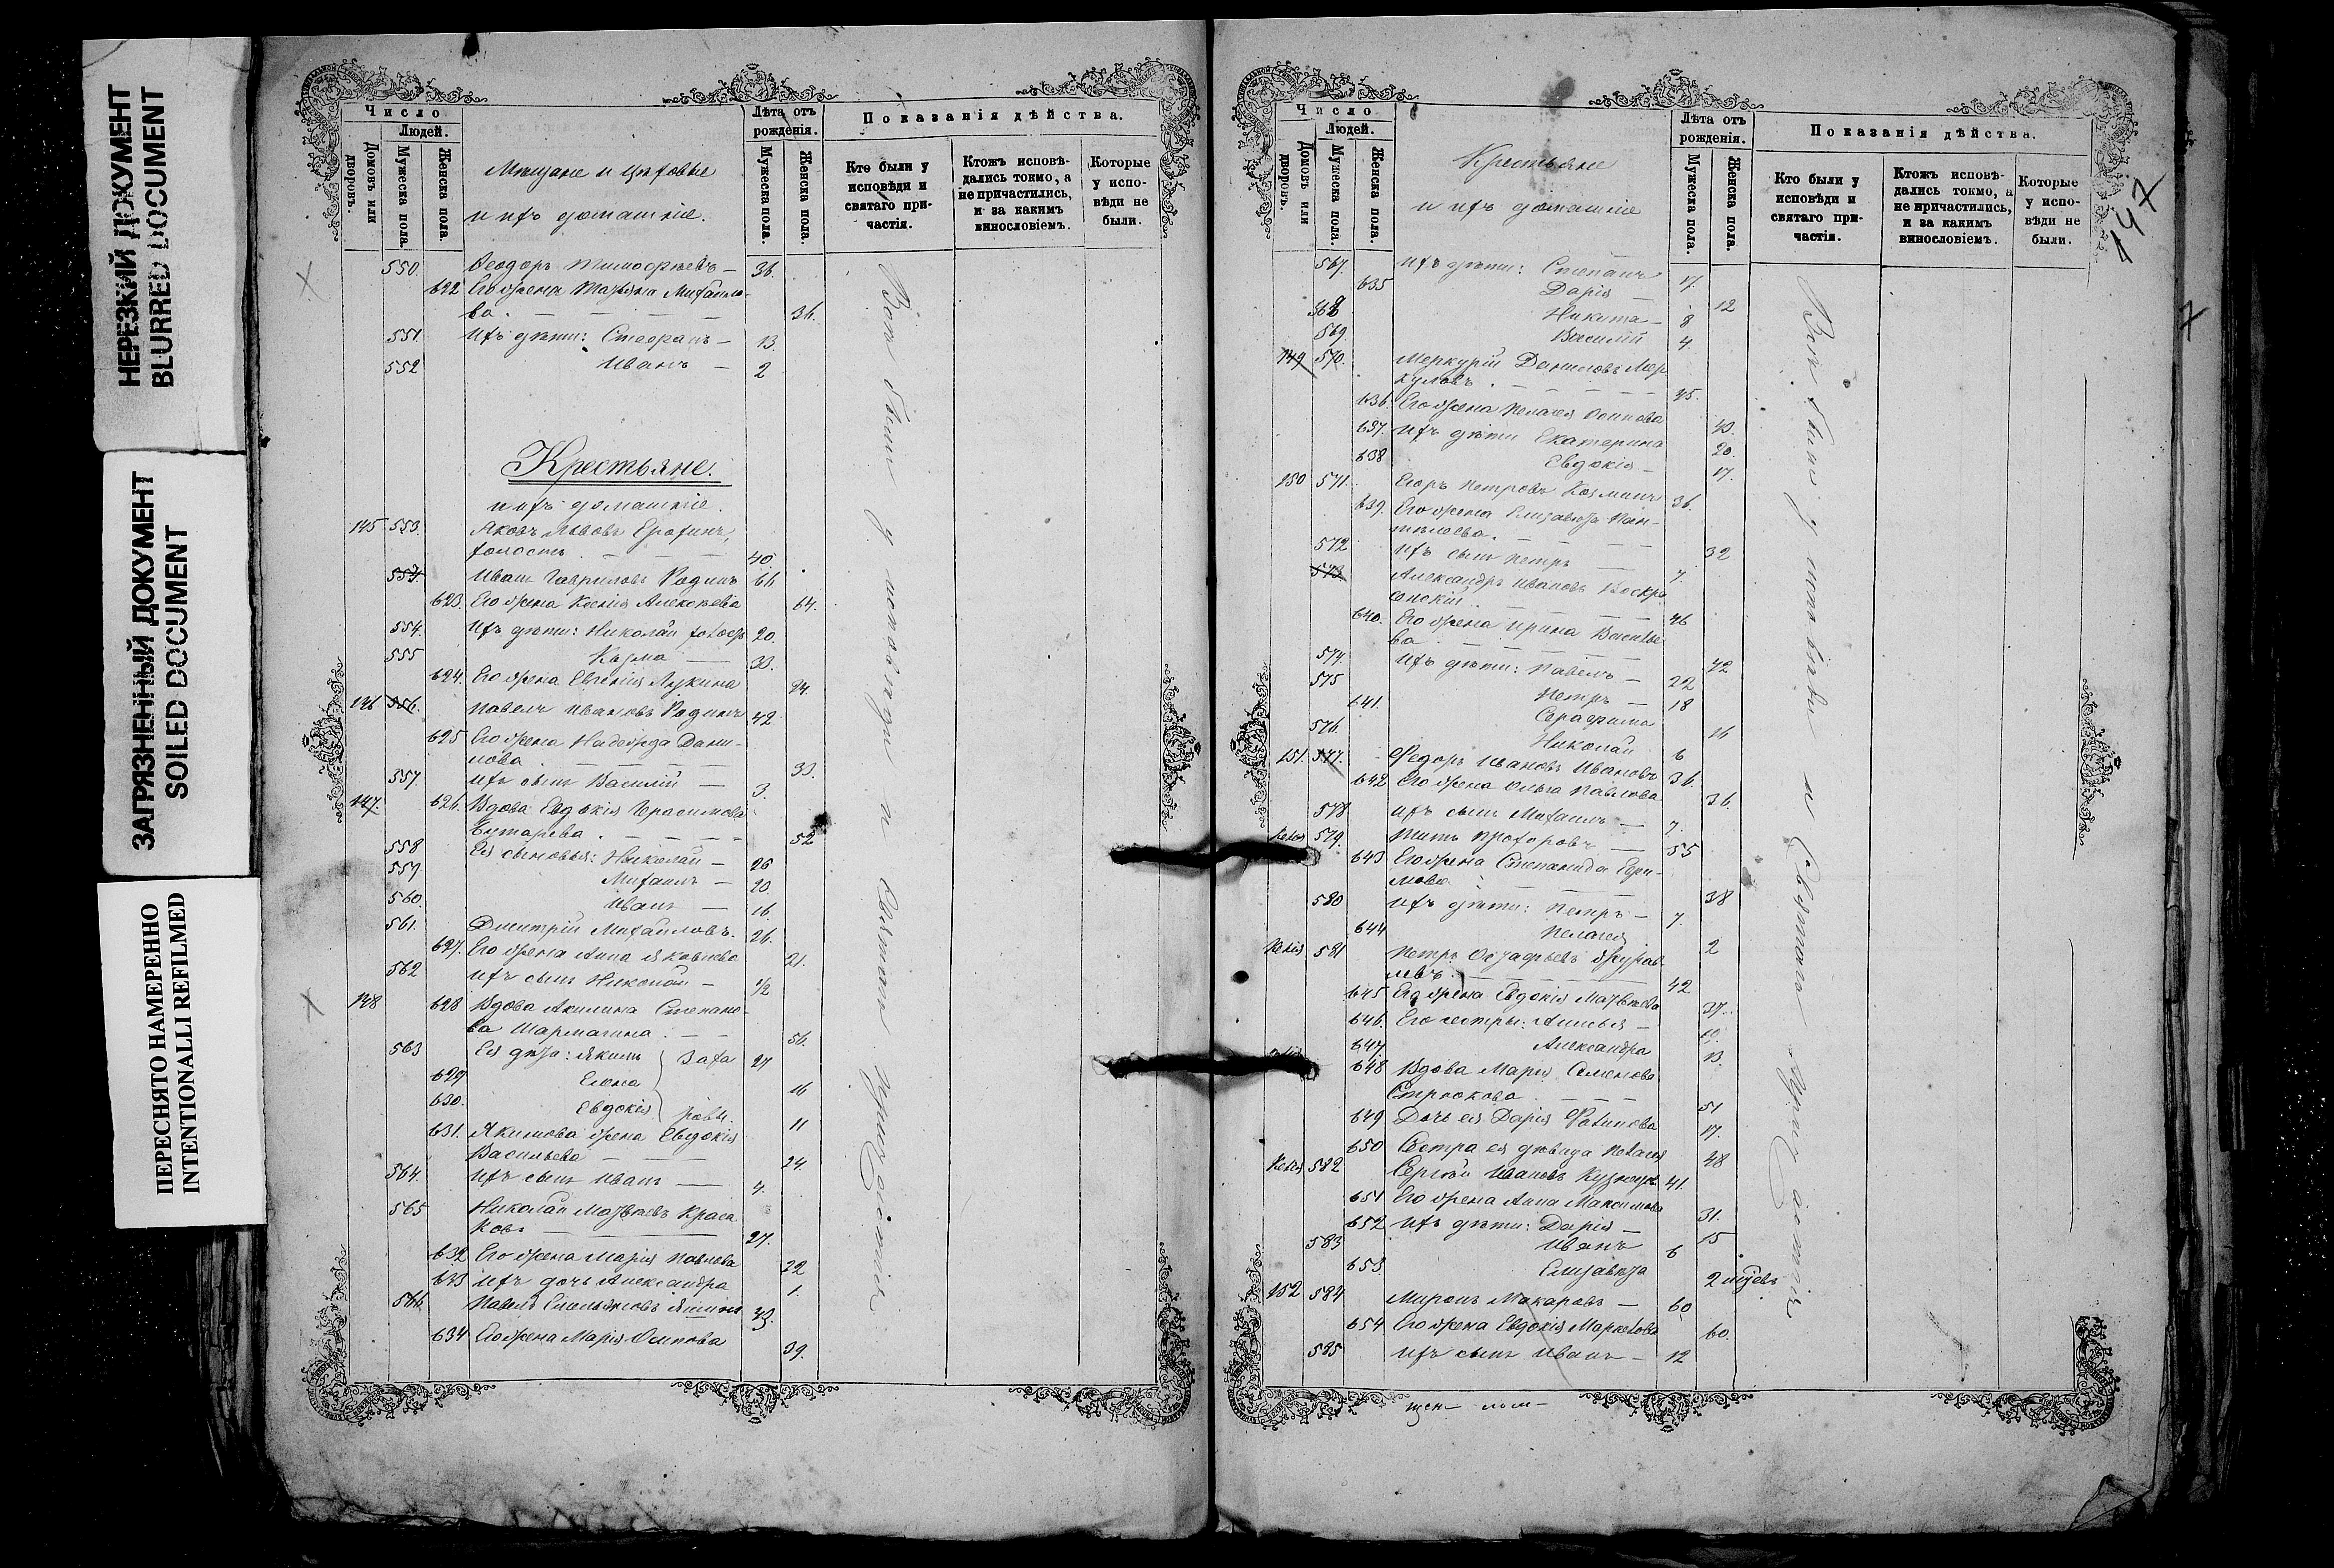 НЕРЕЗКИЙ ДОКУМЕНТ
BLURRED DOCUMENT
ЗАГРЯЗНЕННЫЙ ДОКУМЕНТ
SOILED DOCUMENT
ПЕРЕСНЯТО НАМЕРЕННО
INTENTIONALLI REFILMED
Число
Людей.
Домовъ или дворовъ.
Мужеска пола.
Женска пола.
Мещане и цеховые
и ихъ домашніе.
Лѣта отъ рожденія.
Мужеска пола.
Женска пола.
Показанія дѣйства.
Кто были у исповѣди и святаго причастія.
Ктожъ исповѣдались токмо, а не причастились, и за какимъ винословіемъ.
Которые у исповѣди не были.
550. Ѳеодоръ Тимофѣевъ — 36.
622 Его жена Татьяна Михайло-
ва. 36.
551. Ихъ дѣти: Стефанъ — 13.
552 Иванъ — 2
Крестьяне.
и ихъ домашніе.
145 553. Яковъ Львовъ Ерохинъ,
холостъ. 40.
553. Иванъ Гавриловъ Родинъ 66
623. Его жена Ксенія Алексѣева 64.
554. Ихъ дѣти: Николай холостъ 20.
555 Козма — 30.
624. Его жена Евгенія Лукина 24.
146 556. Павелъ Ивановъ Родинъ 42
625 Его жена Надежда Дани-
лова. 33.
557. Ихъ сынъ Василій — 3.
147. 626. Вдова Евдокія Герасимова
52
558 Ея сыновья: Николай — 26
559. Михаилъ — 20.
560. Иванъ — 16.
561. Дмитрій Михайловъ. 26.
627. Его жена Анна Яковлева 21.
562 Ихъ сынъ Николай — 1/2
148 628 Вдова Акилина Степано-
ва Шармагина. 56.
563 Ея дѣти: Якимъ Заха 27
629 Елена 16
630. Евдокія ровы. 11
631. Якимова жена Евдокія
Васильева — 24.
564. Ихъ сынъ Иванъ — 4.
565 Николай Матвѣевъ Краса
ковъ — 27.
632 Его жена Марія Павлова 22
633 Ихъ дочь Александра 1.
566. Павелъ Емельяновъ 43.
634 Его жена Марія Осипова 39.
Вси были у исповѣди и Святаго Причастія
147
7
Число
Людей.
Домовъ или дворовъ.
Мужеска пола.
Женска пола.
Крестьяне
и ихъ домашніе
Лѣта отъ рожденія.
Мужеска пола.
Женска пола.
Показанія дѣйства.
Кто были у исповѣди и святаго причастія.
Ктожъ исповѣдались токмо, а не причастились, и за какимъ винословіемъ.
Которые у исповѣди не были.
567. Ихъ дѣти: Степанъ 17.
635 Дарія — 12
568 Никита — 8
569. Василій 4.
149 570. Меркурій Даниловъ Мер
куловъ. 45.
636. Его жена Пелагея Осипова 43.
637. Ихъ дѣти Екатерина 20.
638 Евдокія — 17.
150 571. Егоръ Петровъ Козминъ 36.
639. Его жена Елизавета Пан-
телеева. 32
572 Ихъ сынъ Петръ — 7.
573. Александръ Ивановъ Воскре
сенскій. 46
640. Его жена Ирина Василье
ва. 42
574. Ихъ дѣти: Павелъ — 22
575 Петръ — 18
641. Серафима 16
576. Николай 6
151. 577. Федоръ Ивановъ Ивановъ 36.
642 Его жена Ольга Павлова 36.
578 Ихъ сынъ Михаилъ — 7.
579. Титъ Прохоровъ — 55
643 Его жена Степанида Ефи-
мова. 38
580 Ихъ дѣти: Петръ — 7.
644 Пелагея 2
581 Петръ Журав-
левъ. 42
645 Его жена Евдокія Матвѣева 37.
646. Его сестры: —
647. Александра 13.
648 Вдова Марія Семенова
Стрюкова 51
649 Дочь ея Дарія 17.
650 Сестра ея дѣвица 48
582 Сергѣй Ивановъ Кузнецовъ 41.
651 Его жена Анна Максимова 31.
652 Ихъ дѣти: Дарія — 15
583 Иванъ 6
653. Елизавета 2
152 584 Миронъ Макаровъ — 60
654 Его жена Евдокія Маркелова 60.
585 Ихъ сынъ Иванъ — 12
Вси были у исповѣди и Святаго Причастія